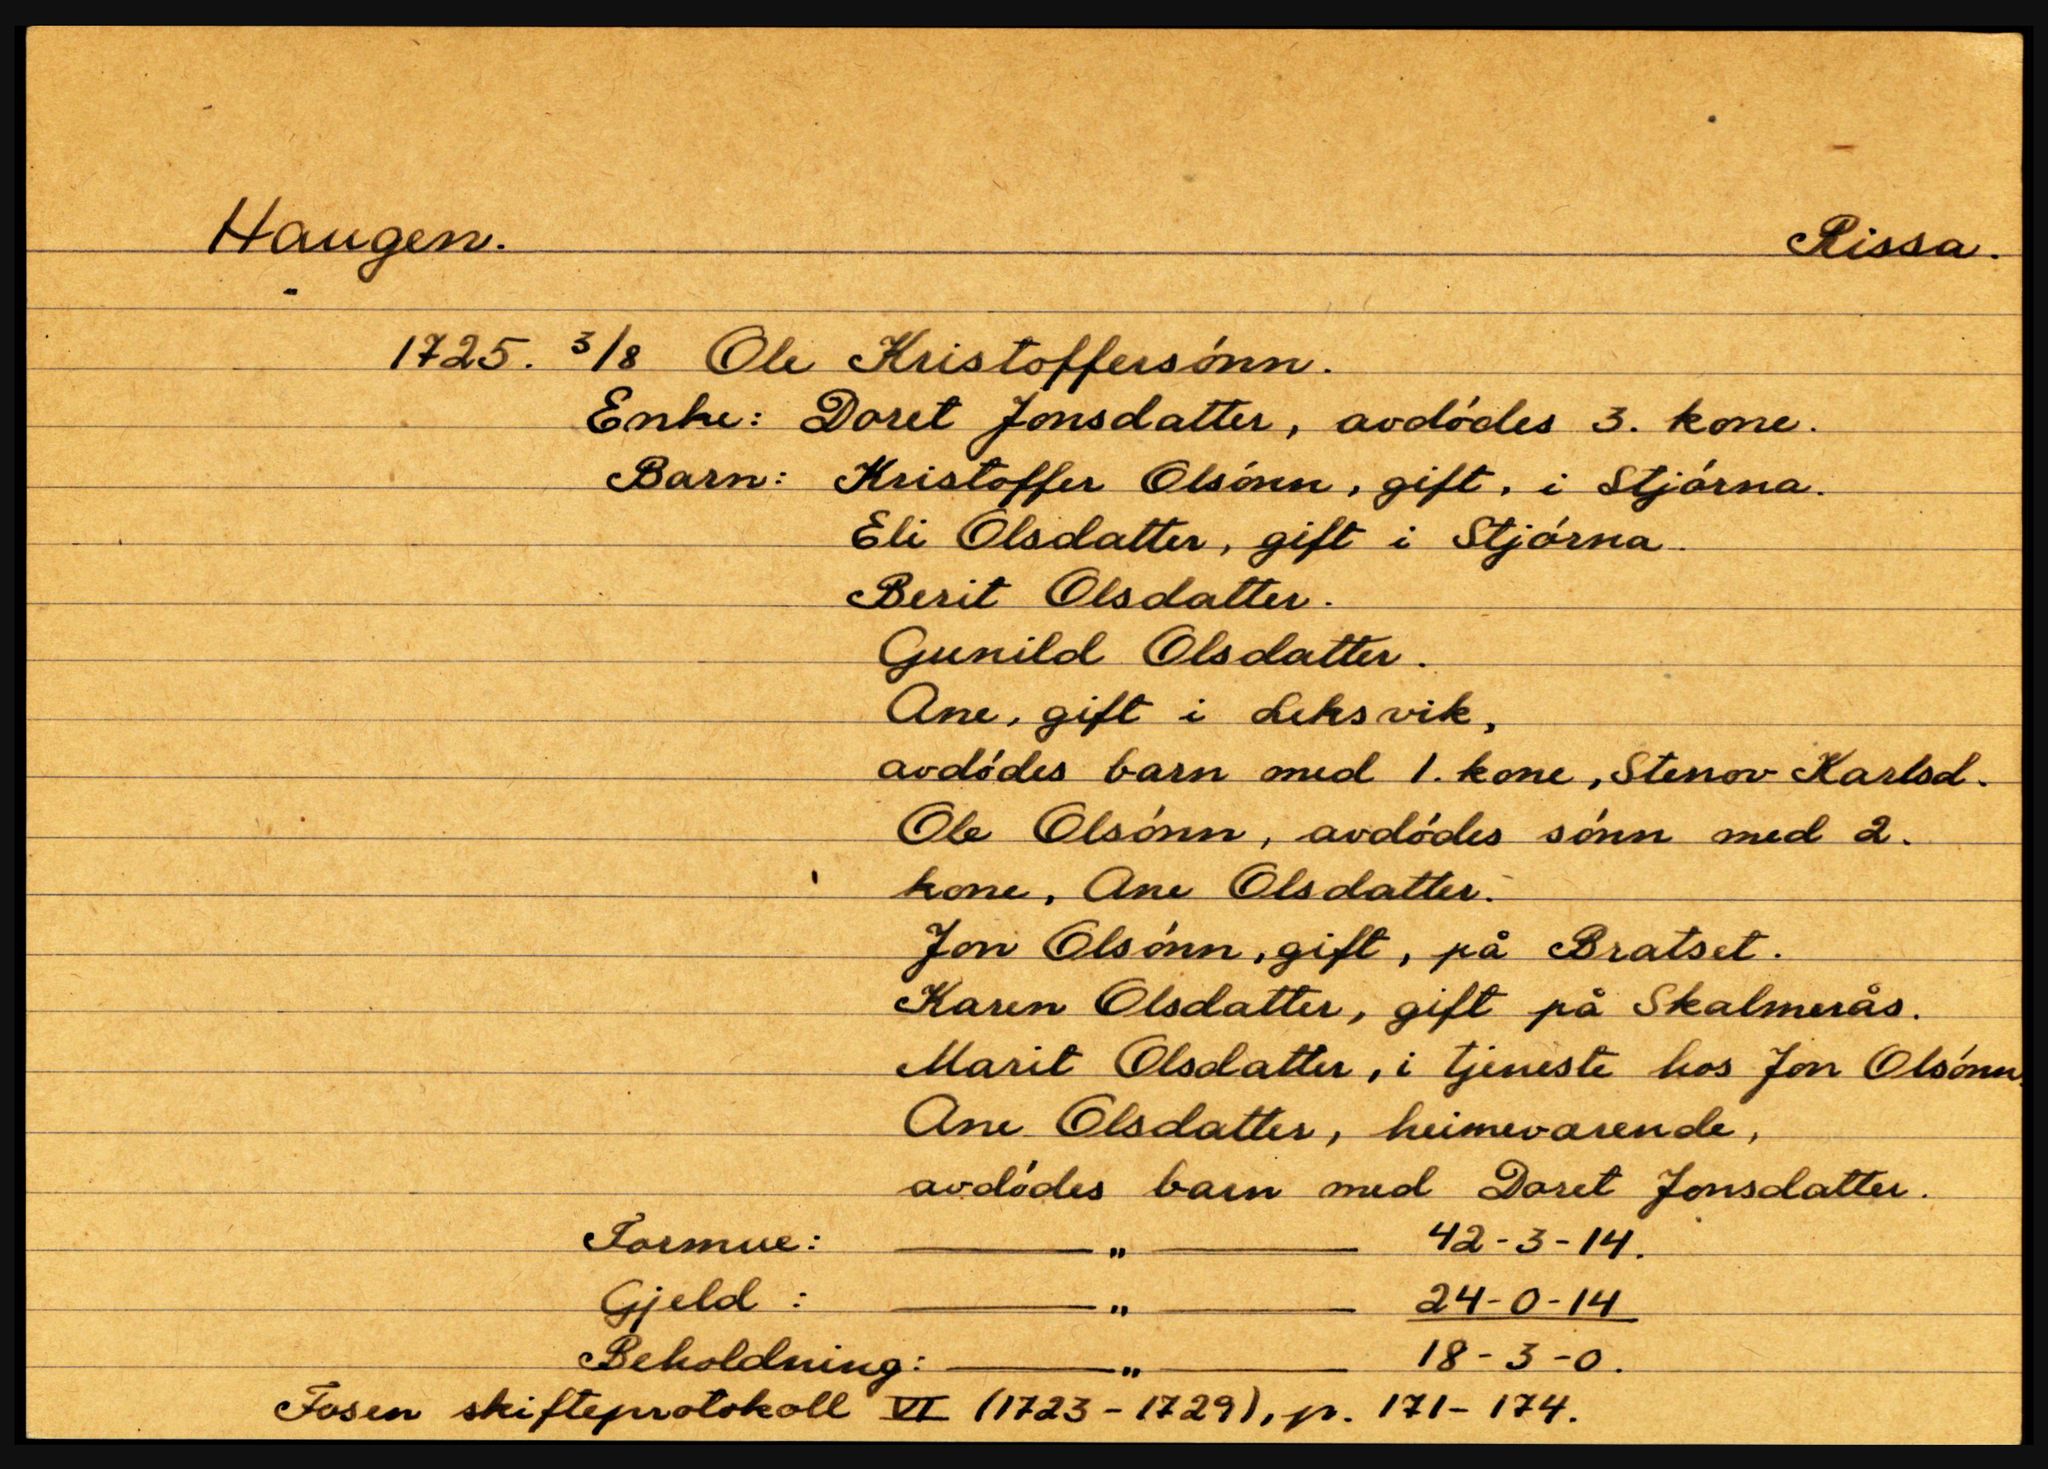 Haugen. Rissa.
1725. 3/8 Ole Kristoffersónn.
Enke: Doret Jonsdatter, avdódes 3. kone.
Barn: Kristoffer Olsónn, gift, i Stjórna.
Eli Olsdatter, gift i Stjórna.
Berit Olsdatter.
Gunild Olsdatter.
Ane, gift i Leksvik,
avdódes barn med 1. kone, Stenov Karlsd.
Ole Olsónn, avdódes sónn med 2.
kone, Ane Olsdatter.
Jon Olsónn, gift, på Bratset.
Karen Olsdatter, gift på Skalmerås.
Marit Olsdatter, i tjeneste hos Jon Olsónn.
Ane Olsdatter, heimevarende,
avdódes barn med Doret Jonsdatter.
Formue: —— „ —— 42-3-14.
Gjeld : —— „ —— 24-0-14
Beholdning: —— „ —— 18-3-0.
Fosen skifteprotokoll VI (1723-1729), p. 171-174.